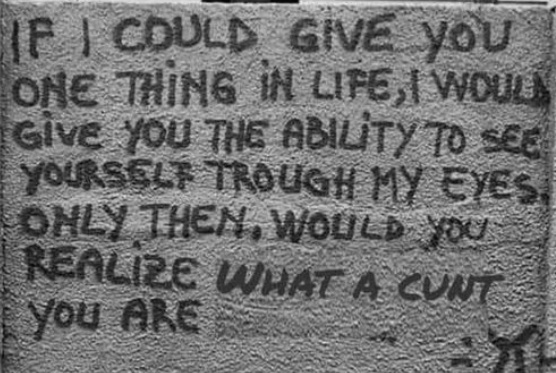 IF I COULD GIVE YOU
ONE THING IN LIFE, I WOULD
GIVE YOU THE ABILITY TO SEE
YOURSELF TROUGH MY EYES.
ONLY THEN, WOULD YOU
REALIZE WHAT A CUNT
YOU ARE